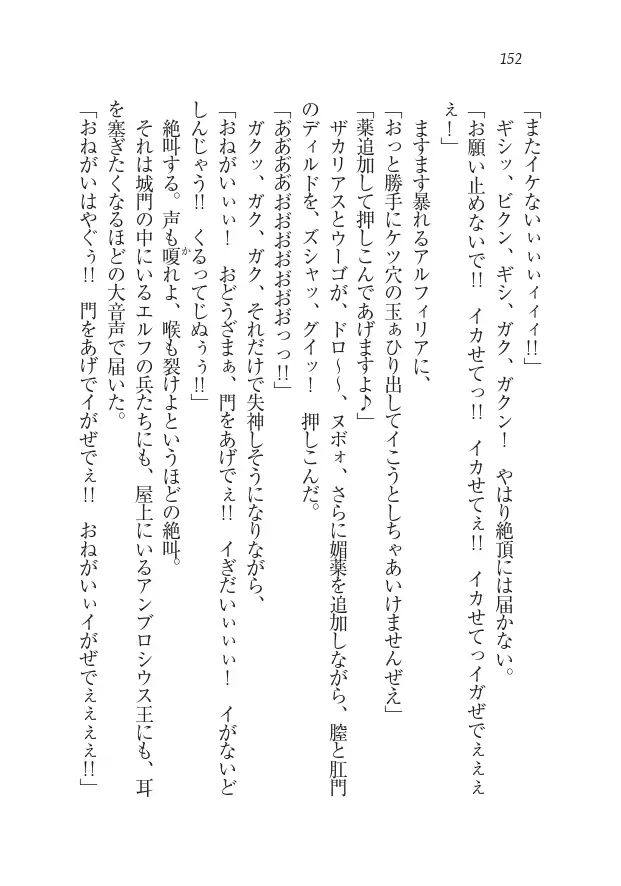 152
「またイケないぃぃぃィィィ!!」
ギシッ、ビクン、ギシ、ガク、ガクン！　やはり絶頂には届かない。
「お願い止めないで!!　イカせてっ!!　イカせてぇ!!　イカせてっイガぜでぇぇぇ
ぇ！」
ますます暴れるアルフィリアに、
「おっと勝手にケツ穴の玉ぁひり出してイこうとしちゃあいけませんぜえ」
「薬追加して押しこんであげますよ♪」
ザカリアスとウーゴが、ドロ～～、ヌボォ、さらに媚薬を追加しながら、膣と肛門
のディルドを、ズシャッ、グイッ！　押しこんだ。
「あああああおおおおおおおっっ!!」
ガクッ、ガク、ガク、それだけで失神しそうになりながら、
「おねがいぃぃ！　おどうざまぁ、門をあげでぇ!!　イぎだいぃぃぃ！　イがないど
しんじゃう!!　くるってじぬぅぅ!!」
絶叫する。声も嗄かれよ、喉も裂けよというほどの絶叫。
それは城門の中にいるエルフの兵たちにも、屋上にいるアンブロシウス王にも、耳
を塞ぎたくなるほどの大音声で届いた。
「おねがいはやぐぅ!!　門をあげでイがぜでぇ!!　おねがいぃイがぜでぇぇぇぇ!!」